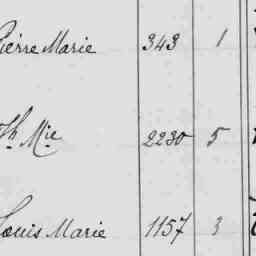 Pierre Marie 343 1
Jh Mie 2230 5
Louis Marie 1157 3